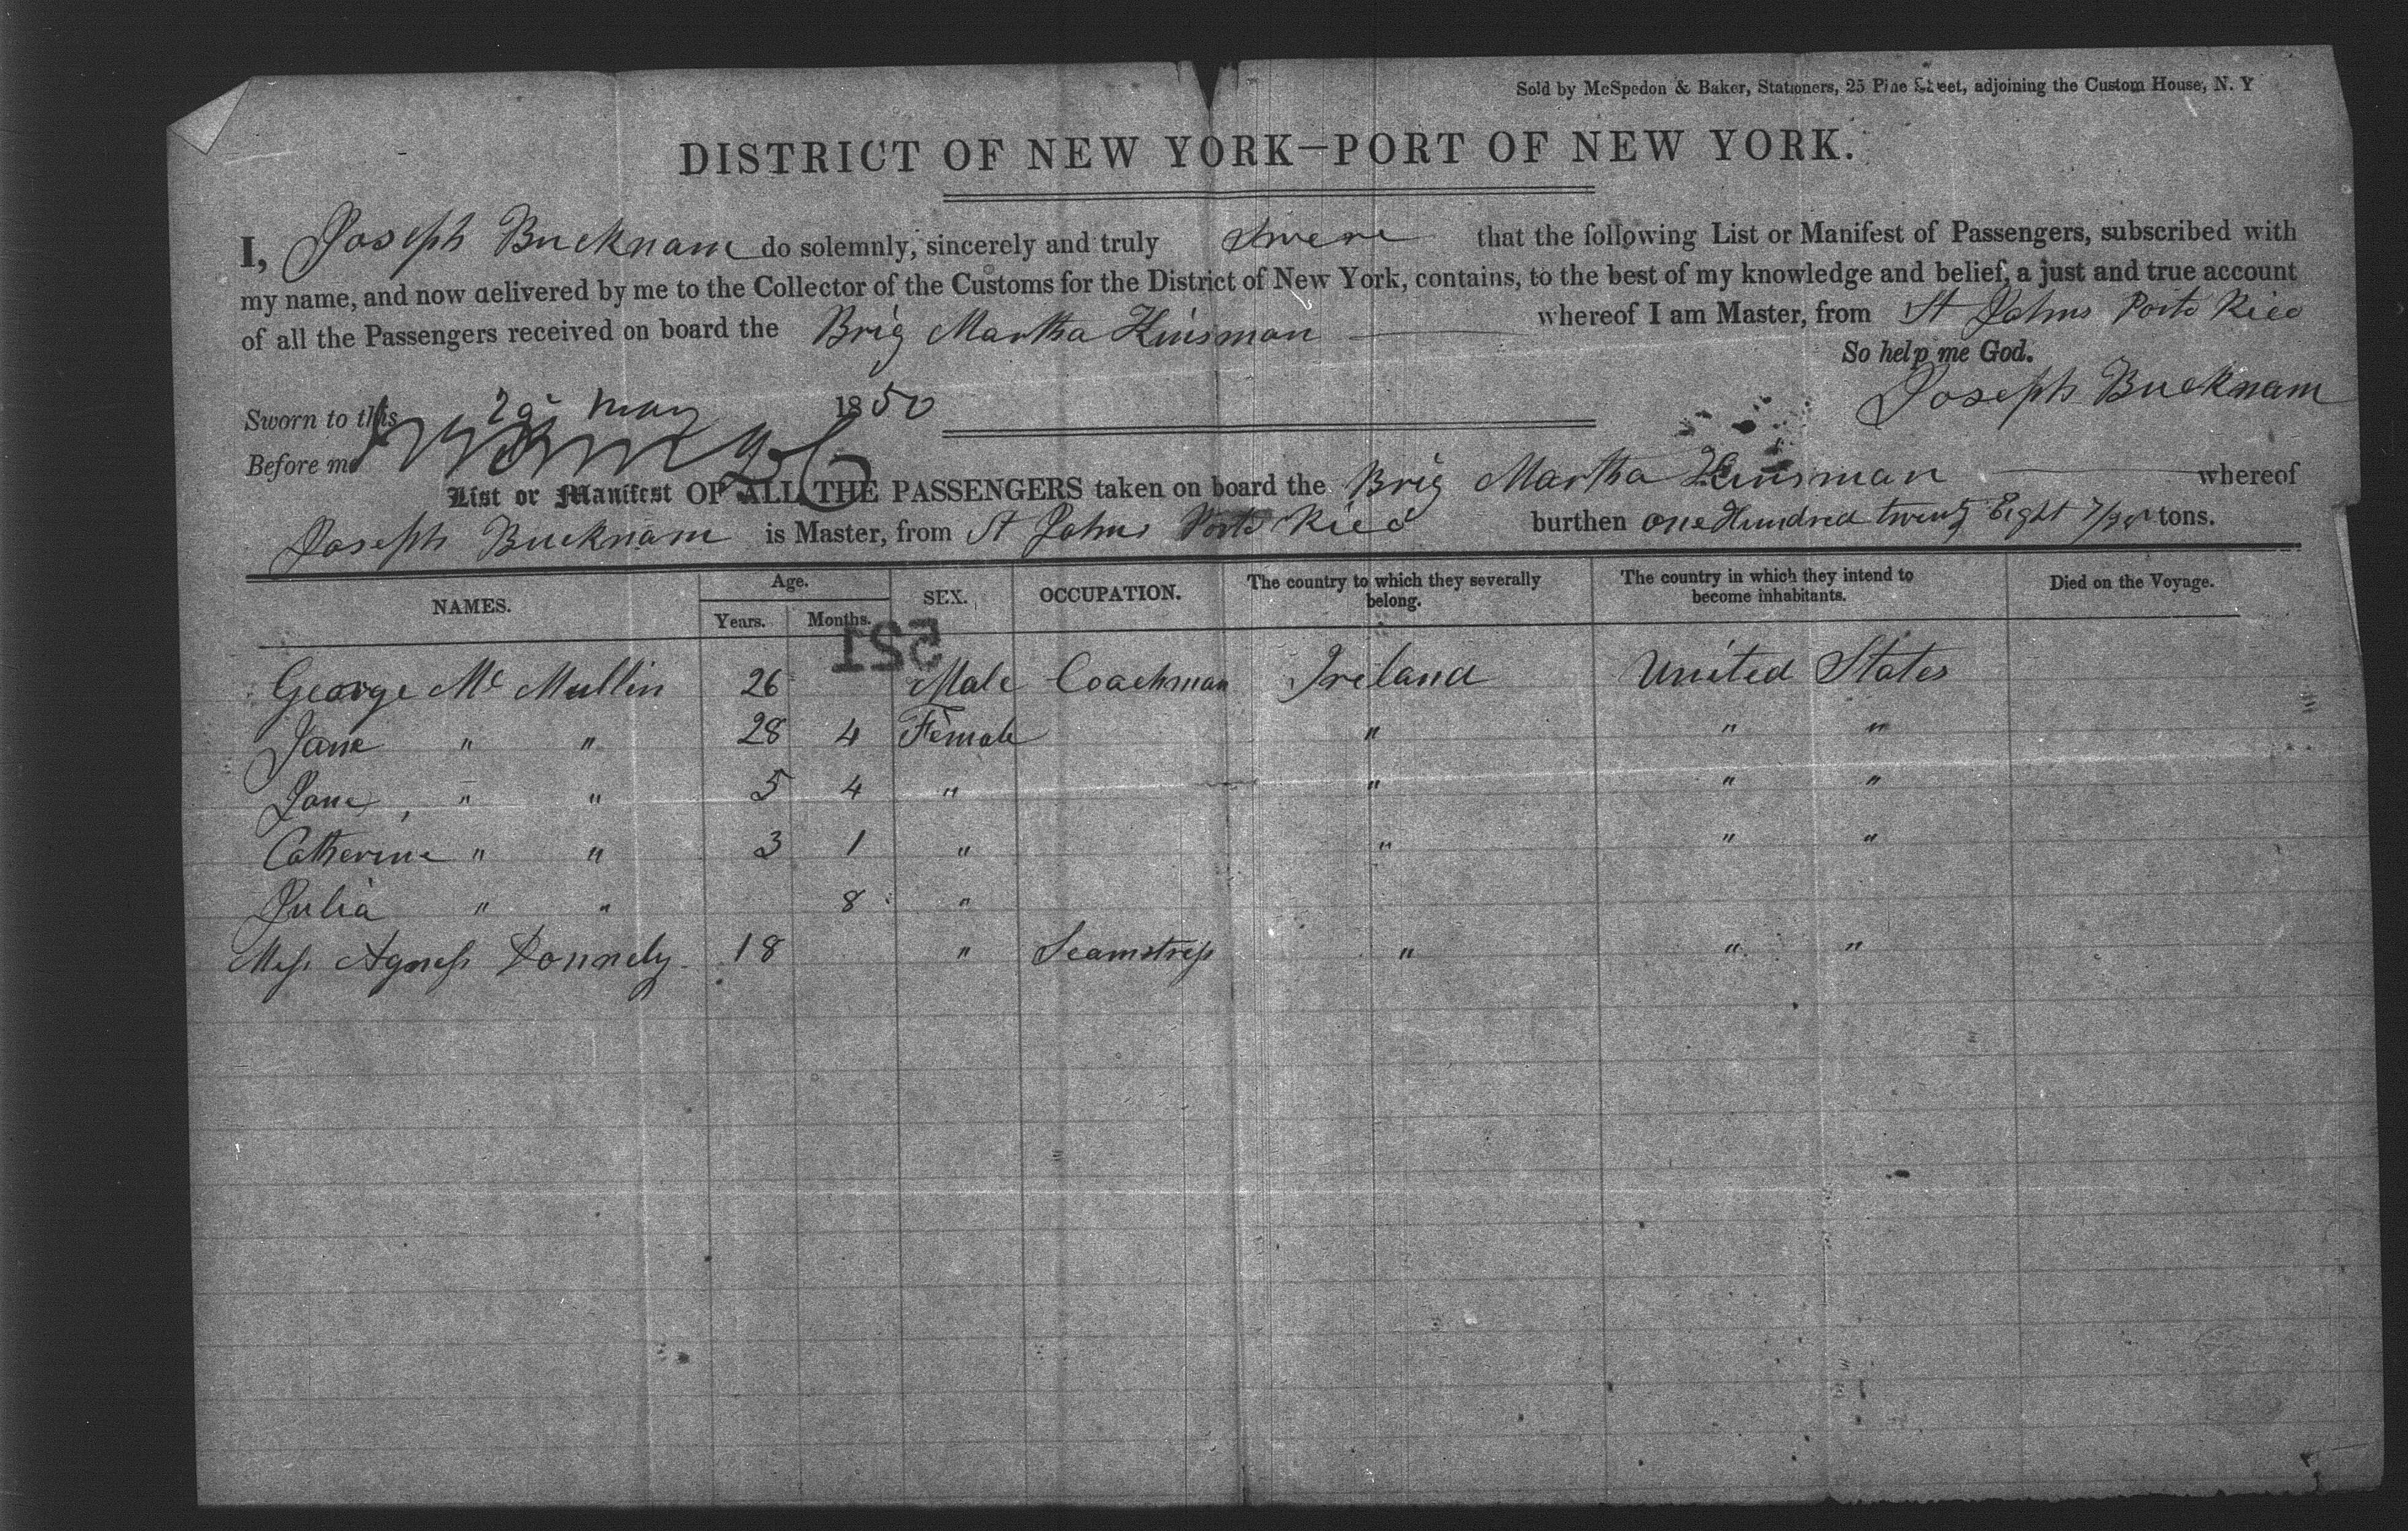 Sold by McSpedon & Baker, Stationers, 25 Pine Street, adjoining the Custom House, N. Y
DISTRICT OF NEW YORK—PORT OF NEW YORK.
I, Joseph Bucknam do solemnly, sincerely and truly that the following List or Manifest of Passengers, subscribed with
my name, and now delivered by me to the Collector of the Customs for the District of New York, contains, to the best of my knowledge and belief, a just and true account
of all the Passengers received on board the Brig Martha Kinsman whereof I am Master, from St Johns Porto Rico
So help me God.
Sworn to this 29 May 1850 Joseph Bucknam
Before me
List or Manifest OF ALL THE PASSENGERS taken on board the Brig Martha Kinsman whereof
Joseph Bucknam is Master, from St Johns Porto Rico burthen one Hundred twenty Eight tons.
NAMES. Age. Years. Months. SEX. OCCUPATION. The country to which they severally belong. The country in which they intend to become inhabitants. Died on the Voyage.
521
George Mc Mullin 26 Male Coachman Ireland United States
Jane " " 28 4 Female " " "
Jane " " 5 4 " " " "
Catherine " " 3 1 " " " "
Julia " " 8 "
Miss Agness Donnely 18 " Seamstress " " "